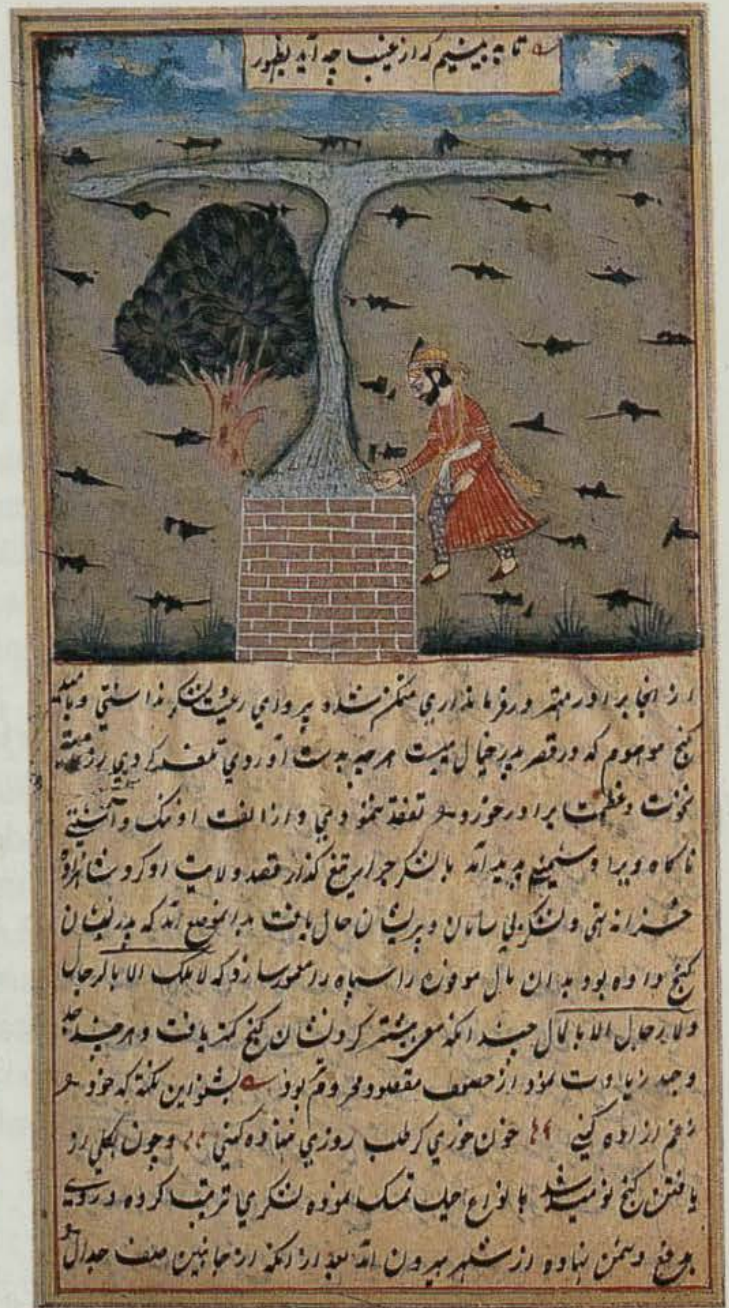 تا به بینیم که از غیب چه آید بظهور
از انجا برادر مهتر در فرمانداری متمکن شده پروای رعیت و لشکر نداشتی و بامید
کنج موهوم که در قصر پدر خیال میبست هر چه بدست آوردی تلف کردی و از
نخوت و عظمت برادر خورد را تفقد ننمودی و از الفت او ننک
ناکاه ویرا دشمنی پدید آمد با لشکر جرار تیغ کذار قصد ولایت او کرد شاهزاده
خزانه تهی و لشکر بی سامان و پریشان حال یافت بدانموضع آمد که پدر نشان
کنج داده بود بدان مال سپاه را معمور سازد که لا ملک الا بالرجال
ولا رجال الا بالمال چندانکه سعی بیشتر کرد نشان کنج کمتر یافت و هر چند جد
و جهد زیادت نمود از حصول مقصود محروم بود بشنو این نکته که خود را
زغم ازاده کنی خون خوری کر طلب روزی ننهاده کنی و چون بکلی از
یافتن کنج نومید شد بانواع حیل تمسک نموده لشکری ترتیب کرده و روی
بدفع دشمن نهاده از شهر بیرون آمد بعد از انکه از جانبین صف جدال